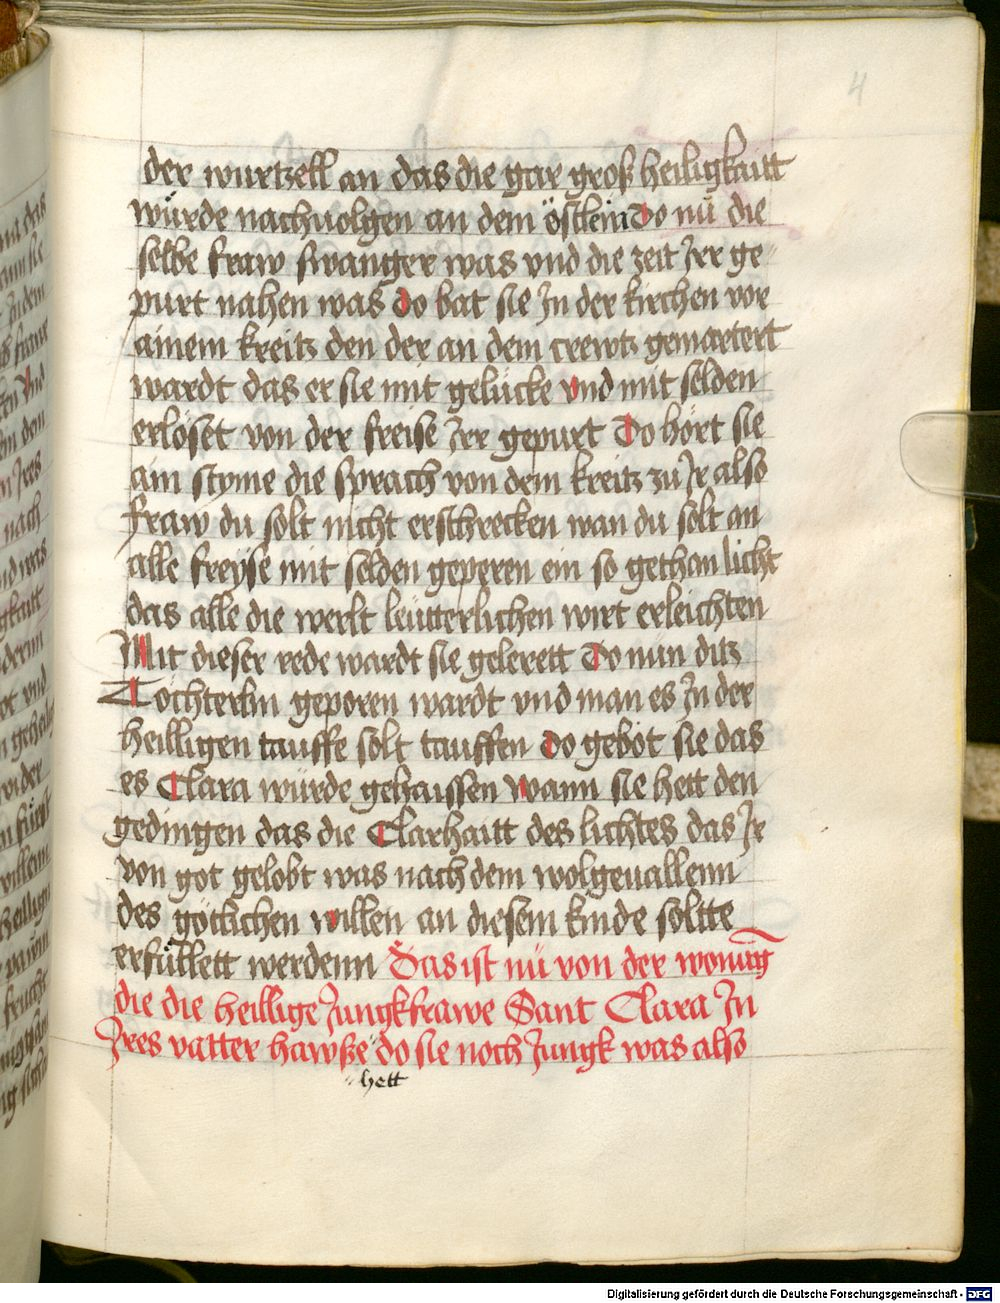 4
der wurtzell an das die gar groß heiligkaitt
würde nachuolgen an dem östlein Do nü die
selbe fraw swanger was vnd die zeit Irer ge
purt nahen was Do bat sie Jn der kirchen vor
ainem kreitz den der an dem crewtz gemartert
wardt das er sie mit gelücke vnd mit selden
erlöset von der freise Irer gepurt Do hört sie
ain styme die sprach von dem kreitz zu Ir also
fraw du solt nicht erschrecken wan du solt an
alle freyse mit selden geperen ein so gethan licht
das alle die werlt leütterlichen wirt erleichten
Mit dieser rede wardt sie gelerett Do nun ditz
Töchterlin geporen wardt vnd man es Jn der
heilligen tauffe solt tauffen Do gebot sie das
es Clara würde gehaissen wann sie hett den
gedingen das die Clarhaitt des lichtes das Ir
von got gelobt was nach dem wolgeuallenn
des götlichen willen an diesem kinde soltte
erfüllett werdenn Das ist nü von der wonūg
die die heillige Jungkfrawe Sant Clara Jn
Jres vatter hawße do sie noch Jungk was also
hett
Digitalisierung gefördert durch die Deutsche Forschungsgemeinschaft - DFG